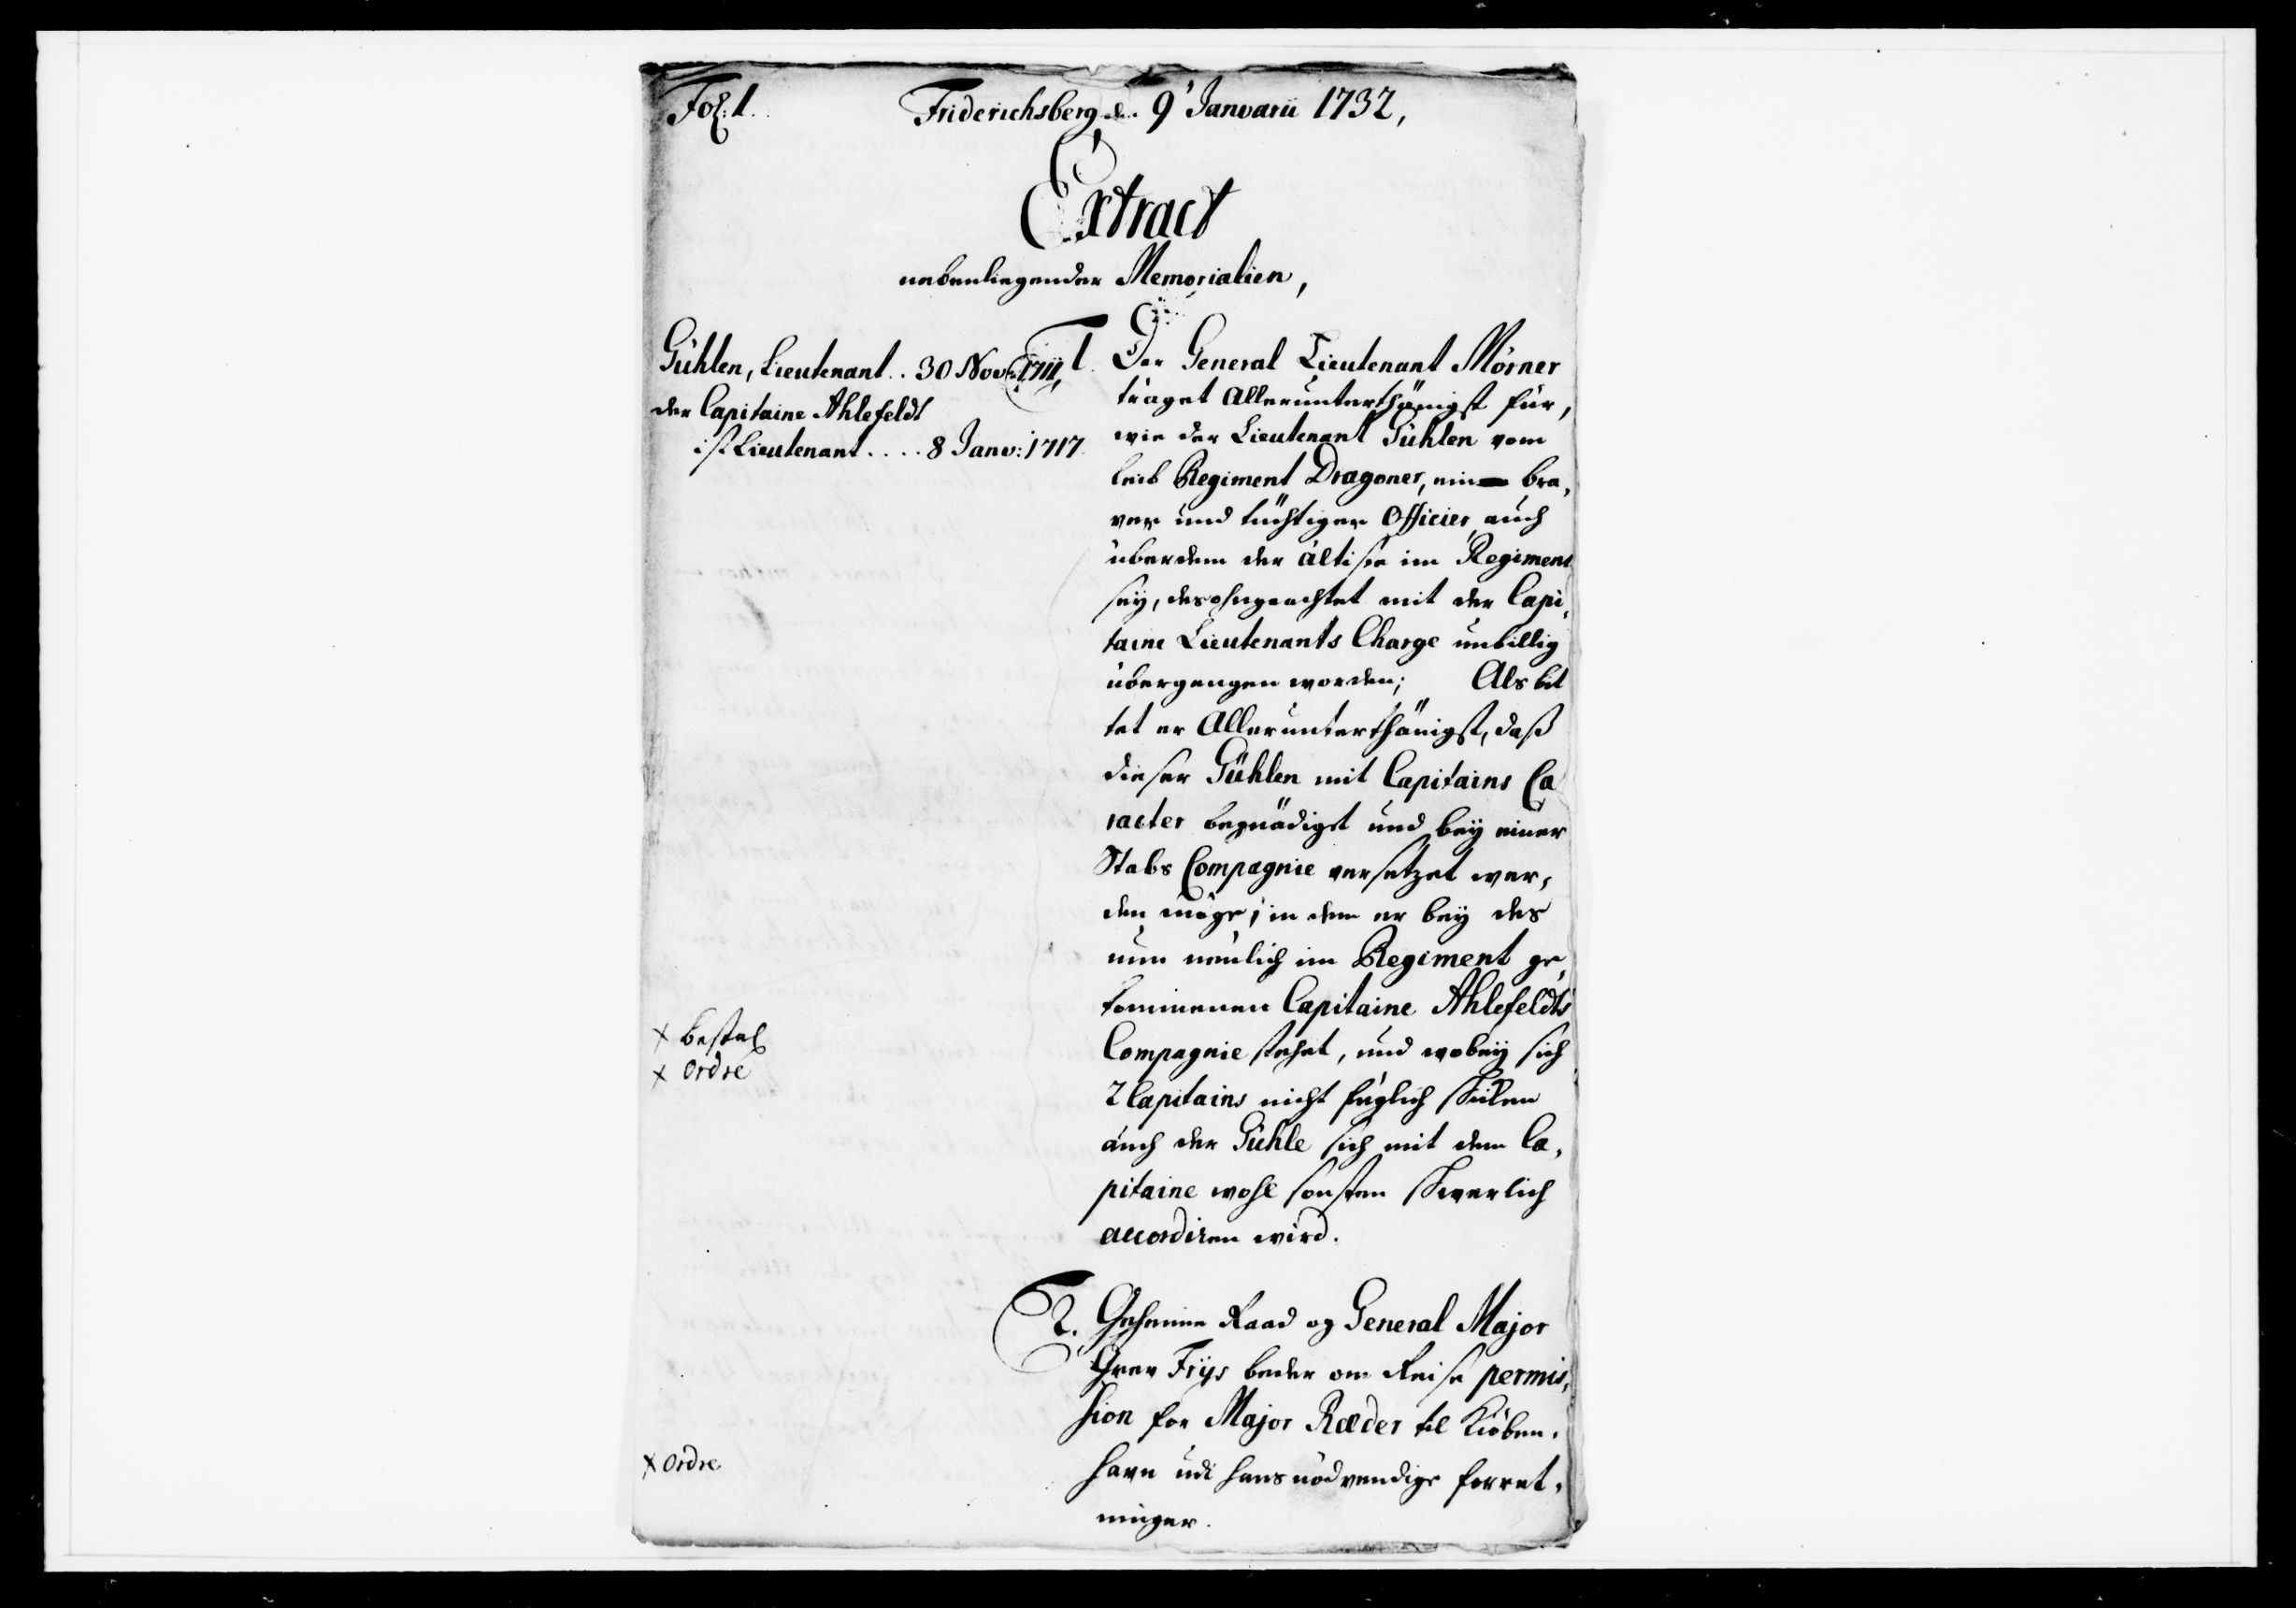 Fol: 1.
Friderichsberg d. 9' Januarii 1732,
Extract
nebenliegender Memorialien,
Gühlen, Lieutenant .. 30 Nov: 1711,
der Capitaine Ahlefeldt
ist Lieutenant .... 8 Janv: 1717
1. Der General Lieutenant Mörner
träget Allerunterthänigst für,
wie der Lieutenant Gühlen vom
leib Regiment Dragoner, ein bra,
ver und tüchtiger Officier, auch
überdem der ältiste im Regiment
seÿ, desohngeachtet mit der Capi,
taine Lieutenants Charge unbillig
übergangen worden; Als bit
tet er Allerunterthänigst, daß
dieser Gühlen mit Capitains Ca
racter begnädiget und beÿ einer
Stabs Compagnie versetzet wer,
den möge, in dem er beÿ des
nun neulich im Regiment ge,
kommenen Capitaine Ahlefeldts
Compagnie stehet, und wobeÿ sich
2 Capitains nicht füglich schicken
auch der Gühle sich mit dem Ca,
pitaine wohl sonsten schwerlich
accordiren wird.
x bestal
x ordre
2. Geheime Raad og General Major
Grev Friis beder om Reise permis,
sion for Major Ræder til Kiöben,
havn udi hans nödvendige forret,
ninger.
x ordre